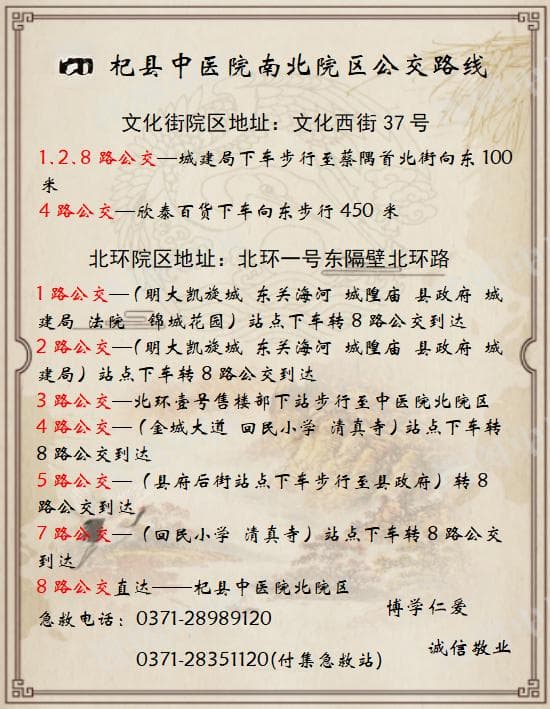 杞县中医院南北院区公交路线
文化街院区地址：文化西街 37 号
1.2.8 路公交—城建局下车步行至蔡隅首北街向东 100
米
4 路公交—欣泰百货下车向东步行 450 米
北环院区地址：北环一号东隔壁北环路
1 路公交—（明大凯旋城 东关海河 城隍庙 县政府 城
建局 法院 锦城花园）站点下车转 8 路公交到达
2 路公交—（明大凯旋城 东关海河 城隍庙 县政府 城
建局）站点下车转 8 路公交到达
3 路公交—北环壹号售楼部下站步行至中医院北院区
4 路公交—（金城大道 回民小学 清真寺）站点下车转
8 路公交到达
5 路公交—（县府后街站点下车步行至县政府）转 8
路公交到达
7 路公交—（回民小学 清真寺）站点下车转 8 路公交
到达
8 路公交直达——杞县中医院北院区
急救电话：0371-28989120
博学仁爱
诚信敬业
0371-28351120(付集急救站)